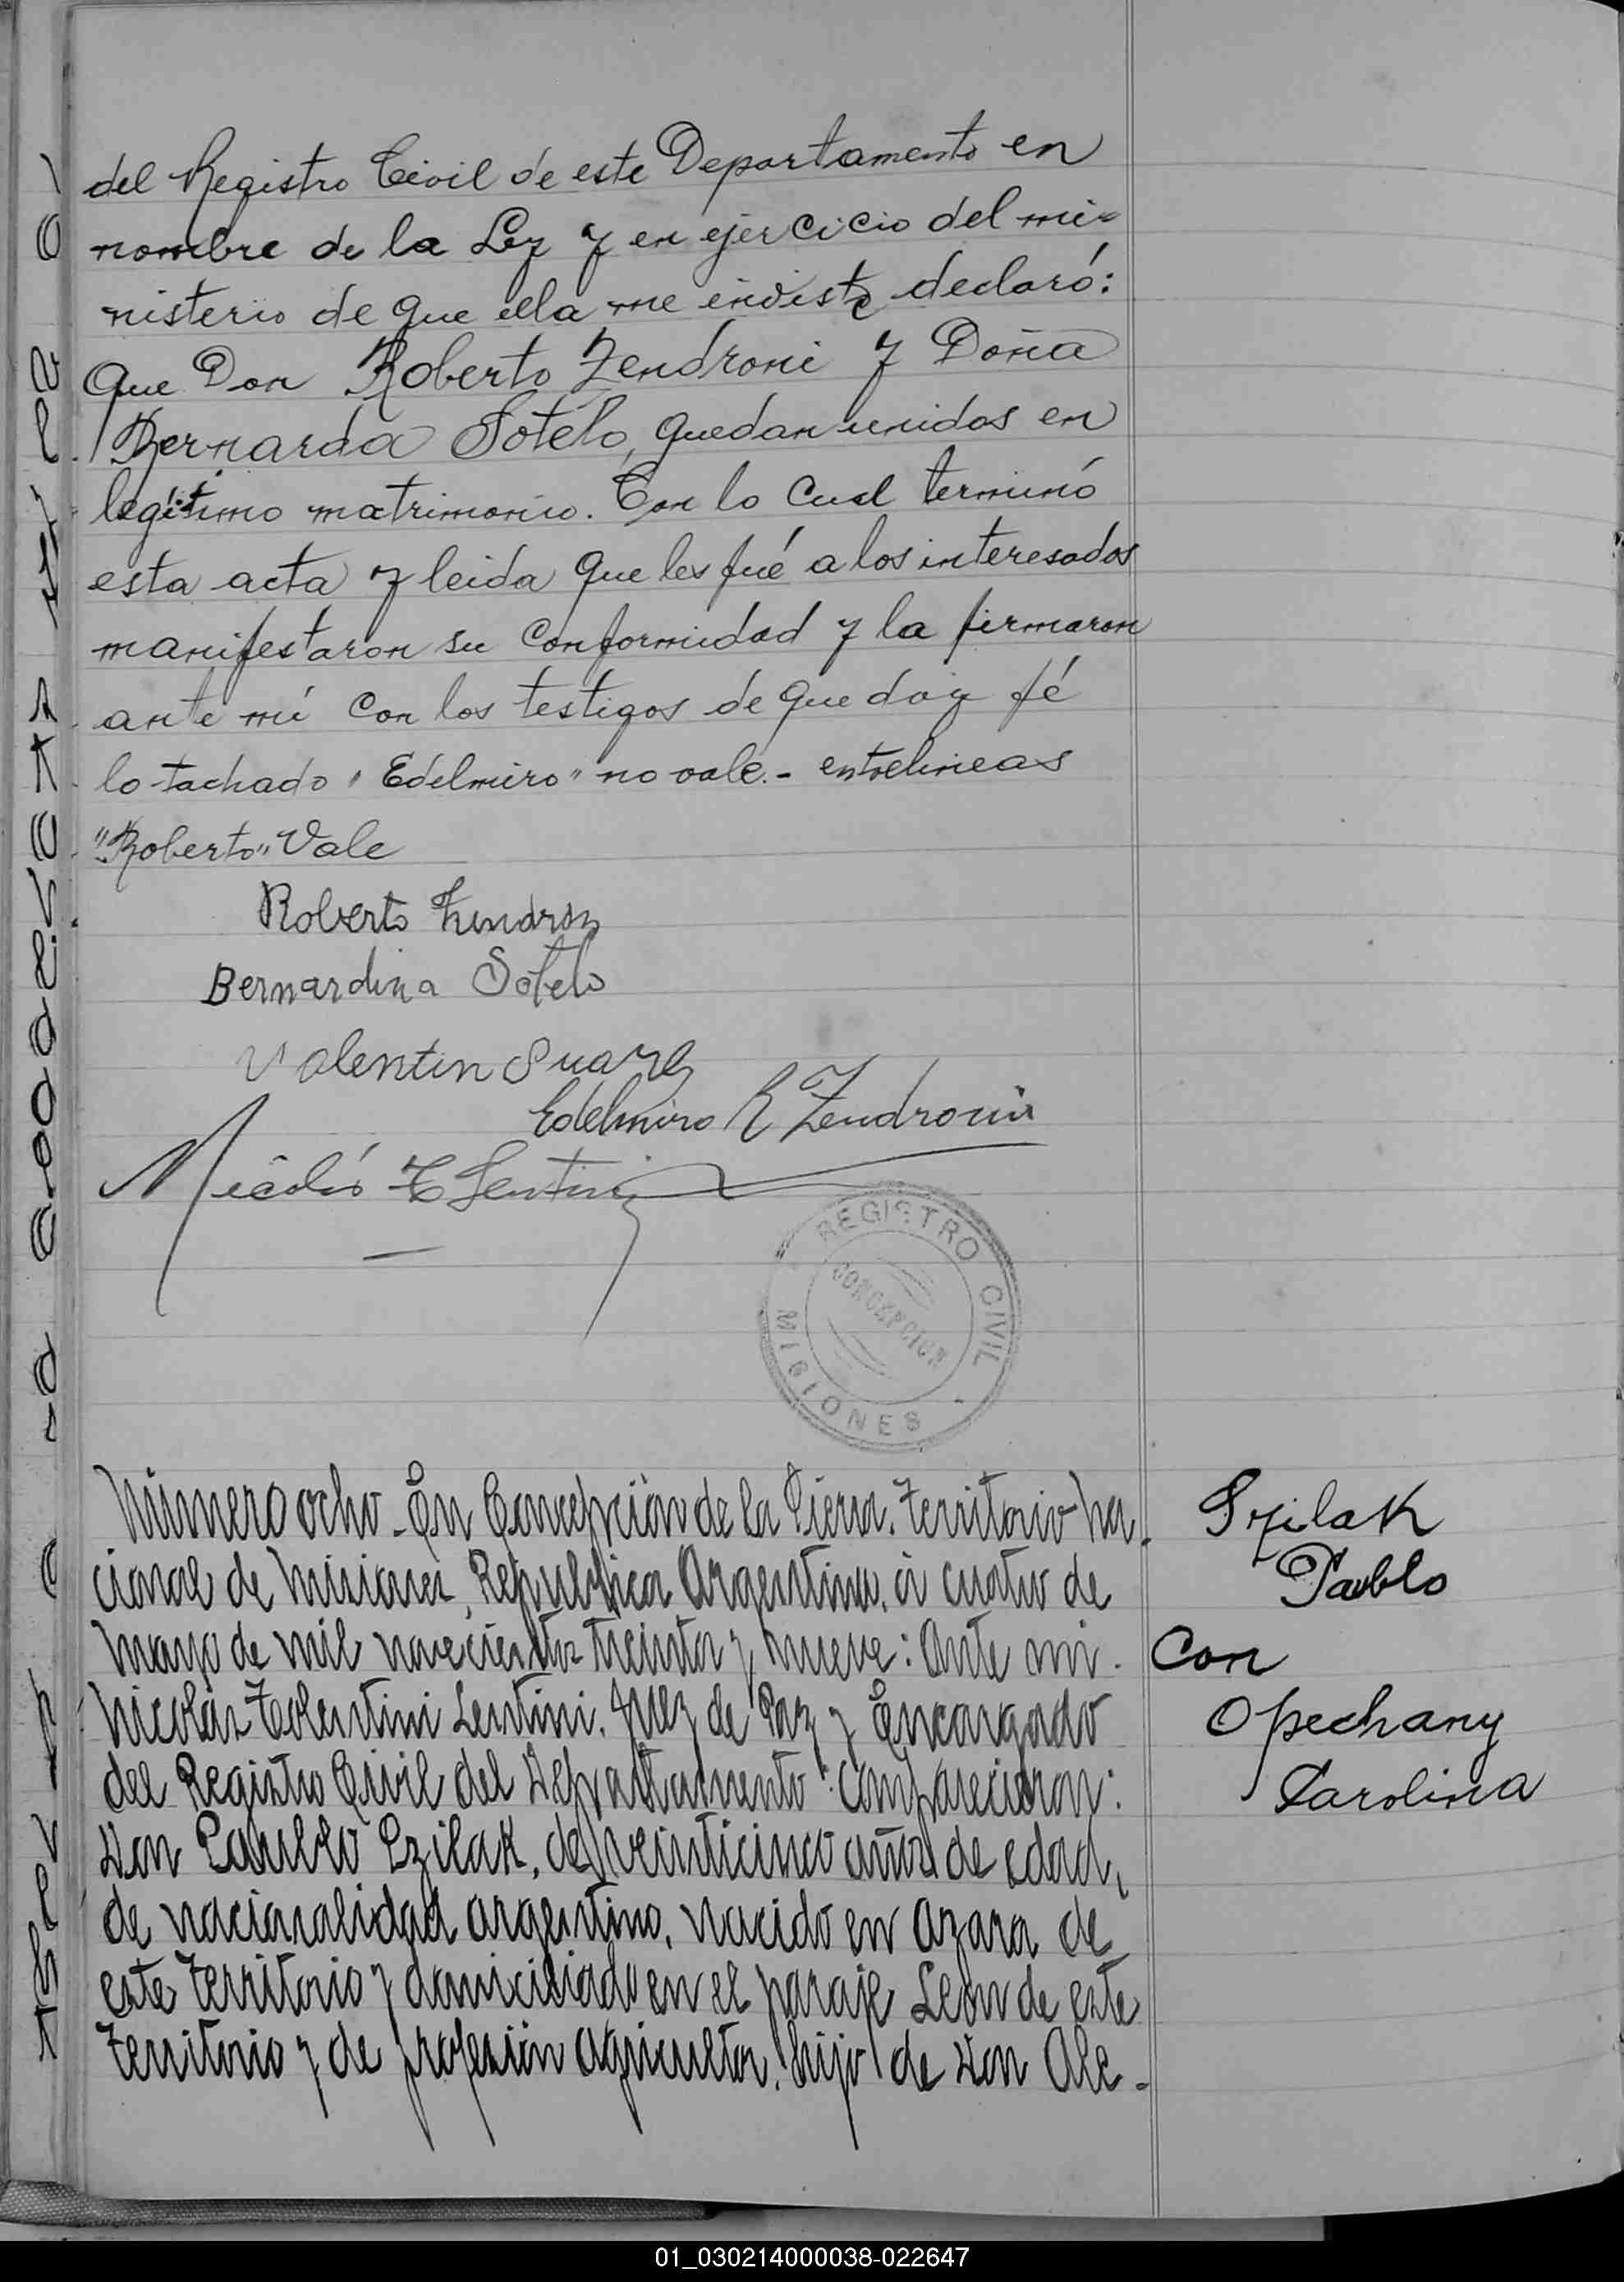 del Registro Civil de este Departamento en
nombre de la Ley y en ejercicio del mi-
nisterio de que ella me enviste declaró:
Que Don Roberto Zendroni y Doña
Bernarda Sotelo, quedan unidos en
legítimo matrimonio. Con lo cual terminó
esta acta y leida que les fué a los interesados
manifestaron su conformidad y la firmaron
ante mí con los testigos de que doy fé
lo tachado "Edelmiro" no vale.- entrelineas
"Roberto" Vale
Roberto
Bernardina Sotelo
Valentin Suarez
Edelmiro R Zendroni
REGISTRO CIVIL
CONCEPCION
MISIONES
Número ocho - En Concepción de la Sierra, Territorio Na-
cional de Misiones, Republica Argentina, á cuatro de
Mayo de mil novecientos treinta y nueve: Ante mi
Nicolás Tolentini Lentini, Juez de Paz y Encargado
del Registro Civil del Departamento: Comparecieron:
Don Paublo Szilak, de veinticinco años de edad,
de nacionalidad argentino, nacido en Azara de
este Territorio y domiciliado en el paraje León de este
Territorio y de profesión agricultor, hijo de Don Ale-
Szilak
Paublo
Con
Opechany
Carolina
01_030214000038-022647